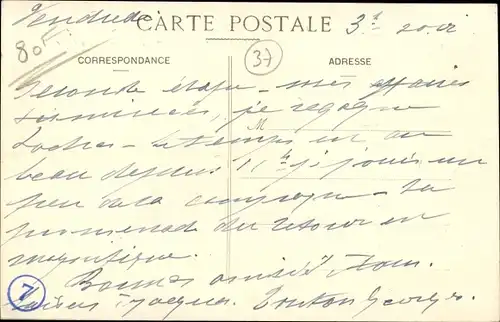 Vendredi CARTE POSTALE 3
80F 37
CORRESPONDANCE ADRESSE
Seconde étape - mes affaires
terminées, je regagne
M
Loches - le temps est au
beau depuis 11h je jouis un
peu de la campagne - La
promenade du retour est
magnifique.
Bonnes amitiés
7 Jacques. Tonton Georges.